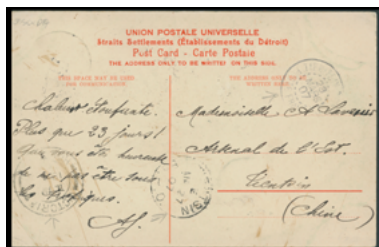 UNION POSTALE UNIVERSELLE
Straits Settlements (Établissements du Détroit)
Post Card - Carte Postale
THE ADDRESS ONLY TO BE WRITTEN ON THIS SIDE.
THIS SPACE MAY BE USED
FOR CORRESPONDENCE
THE ADDRESS ONLY TO BE
WRITTEN HERE
Chaleur étouffante.
Plus que 23 jours!
que vous êtes heureuse
de ne pas être sous
les Tropiques.
Mademoiselle A
Arsenal de l'Est.
Tientsin
(Chine)